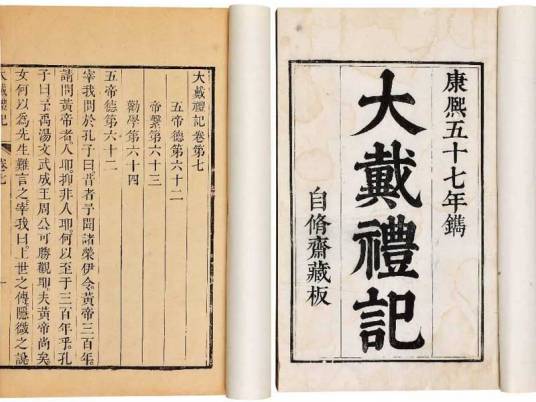 康熙五十七年鐫
大戴禮記
自脩齋藏板
大戴禮記卷第七
五帝德第六十二
帝繫第六十三
勸學第六十四
五帝德第六十二
宰我問於孔子曰昔者予聞諸榮伊令黃帝三百年
請問黃帝者人耶抑非人耶何以至于三百年乎孔
子曰予禹湯文武成王周公可勝觀耶夫黃帝尚矣
女何以為先生難言之宰我曰上世之傳隱微之說
大戴禮記 卷七